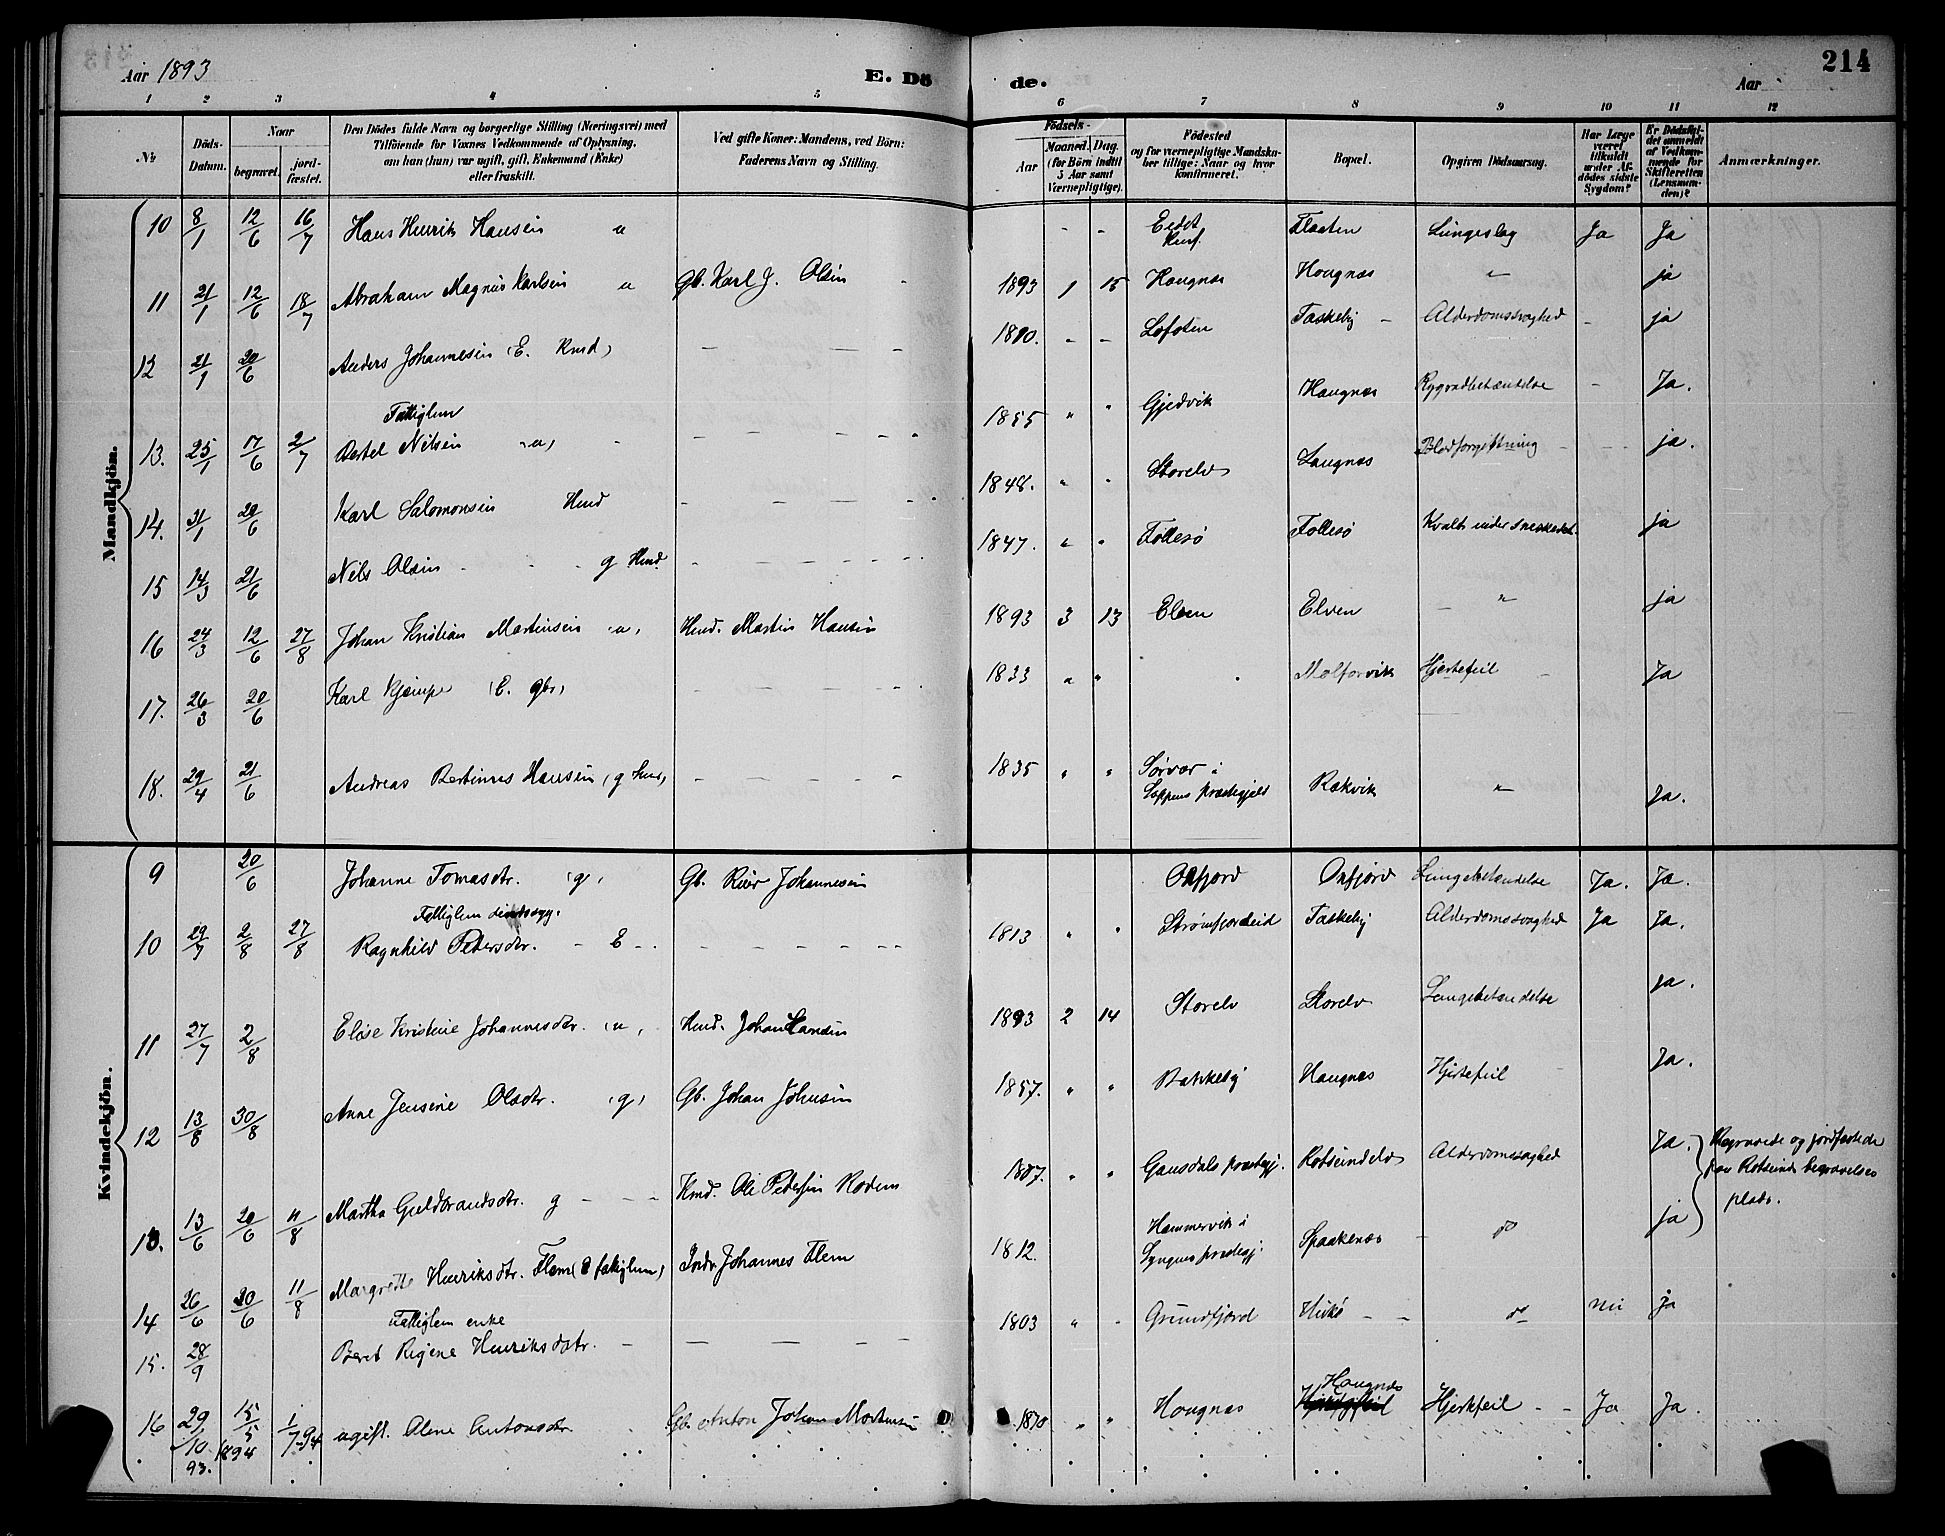 Aar 1893
E. Dö
de.
Aar
214
1 2 3 4 5 6 7 8 9 10 11 12
№
Döds-
Datum.
Naar
begravet.
jord-
fæstet.
Den Dödes fulde Navn og borgerlige Stilling (Næringsvei) med
Tilföiende for Voxnes Vedkommende af Oplysning,
om han (hun) var ugift, gift, Enkemand (Enke)
eller fraskilt.
Ved gifte Koner: Mandens, ved Börn:
Faderens Navn og Stilling.
Födsels-
Aar
Maaned. Dag.
(for Börn indtil
5 Aar samt
Værnepligtige).
Födested
og for værnepligtige Mandska-
ber tillige: Naar og hvor
konfirmeret.
Bopæl.
Opgiven Dödsaarsag.
Har Læge
været
tilkaldt
under Af-
dödes sidste
Sygdom?
Er Dödsfal-
det anmeldt
af Vedkom-
mende for
Skifteretten
(Lensman-
den)?
Anmærkninger.
Mandkjön.
10 8/1 12/6 16/7 Hans Henrik Hansen u - - Flaaten Lungeslag Ja Ja
11 21/1 12/6 18/7 Abraham Magnus Karlsen u Gb. Karl J. Olsen 1893 1 15 Haugnæs Haugnæs " ja
12 21/1 20/6 Anders Johannesen (E. Kmd) - - - 1810. - - Lofoten Taskeby - Alderdomssvaghed - ja
Fattiglem
13. 25/1 17/6 2/7 Bertel Nilsen "u, - - - - 1855 " " Gjedvik Haugnæs Rygradbetændelse - Ja.
14. 31/1 20/6 Karl Salomonsen Hmd - - - - 1848. " " Storelv Langnæs Blodforgiftning - - ja.
15 14/3 21/6 Nils Olsen - - - g Hmd - - - - 1847. " " Follesö Follesö Kvalt under sneskred. ja
16 24/3 12/6 27/8 Johan Kristian Martinsen (u, Hmd. Martin Hansen 1893 3 13 Elven Elven - " ja
17. 26/3 20/6 Karl Kjempe (E. gbr) - - - - 1833 " " Molforvik Hjertefeil - Ja
18. 29/4 21/6 Andreas Bertinus Hansen (g Hmd) - - - - 1835 " " Sørvær i
Loppens præstegjeld Rakvik " Ja.
Kvindekjön.
9 20/6 Johanne Tomasdtr. (g, Gb. Reier Johannesen Oxfjord Oxfjord Lungebetændelse Ja. Ja.
Fattiglem
10 29/7 2/8 27/8 Ragnhild Petersdtr. - E - - - - - - 1813 " " Strömfjordeid Taskeby Alderdomssvaghed Ja Ja.
11 27/7 2/8 Elise Kristine Johannesdtr. (u, Hmd. Johan Hansen 1893 2 14 Storelv Storelv Lungebetændelse Ja.
12 13/8 30/8 Anne Jensine Olsdtr. (g) Gb. Johan Johnsen 1857. " " Bakkeby Haugnæs Hjertefeil Ja.
13. 13/6 20/6 11/8 Martha Guldbrandsdtr. g - - - Hmd. Ole Pedersen Roden 1807. " " Gausdals præstegj. Rotsundelv Alderdomssvaghed Ja.
Begravede og jordfæstede
paa Rotsunds begravelses
plads.
14 26/6 20/6 11/8 Margrethe Henriksdtr. Flem (E fattiglem) Indr. Johannes Flem 1812. Hammervik i
Lyngens præstegj. Spaakenæs - do ja
Fattiglem enke
15. 28/9 Beret Regine Henriksdatr. - - - - - 1803 " - Grundfjord Hukö - - do nei ja
16 29/10 93. 15/5 1894 1/7-94 ugift. Aline Antonsdtr Gb. Anton Johan Mortensen 1870 " " Haugnæs Haugnæs Hjertefeil - - Ja Ja.